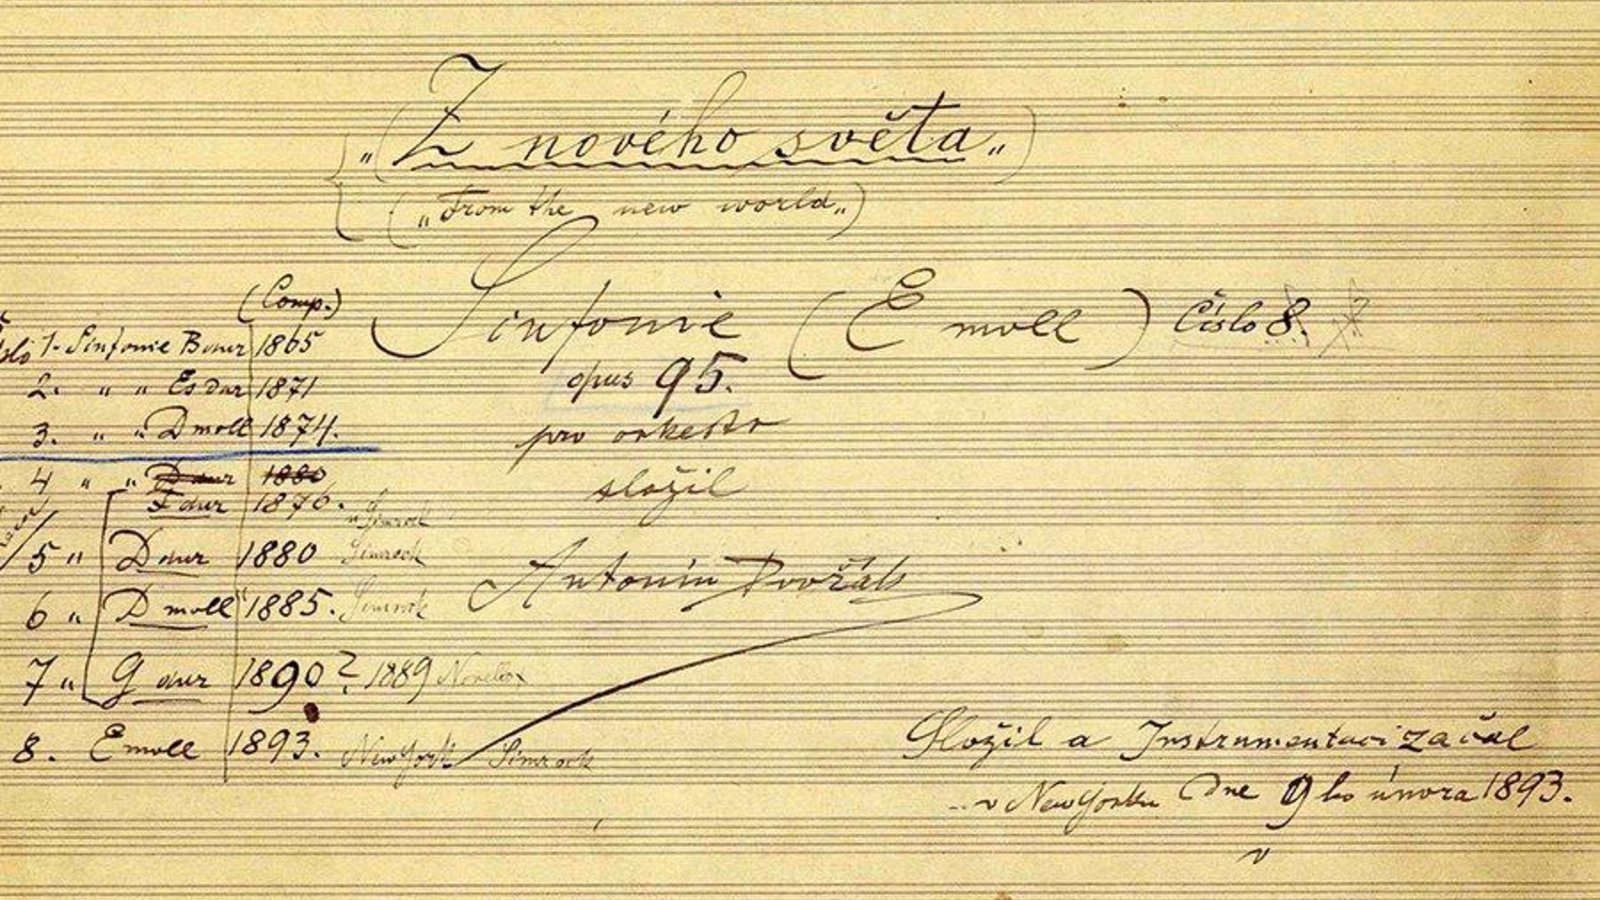 „Z nového světa„
(„From the new world„)
Sinfonie (E moll) Číslo 8.
opus 95.
pro orkestr
složil
Antonín Dvořák
(Comp.)
1. Sinfonie B dur 1865
2. „ „ Es dur 1871
3. „ „ D moll 1874.
4 „ „ D dur 1880
F dur 1876. Simrock
5 „ D dur 1880 Simrock
6 „ D moll 1885. Simrock
7 „ G dur 1890? 1889 Novello
8. E moll 1893. New York Simrock
Složil a Instrumentaci začal
v New Yorku Dne 9ho února 1893.